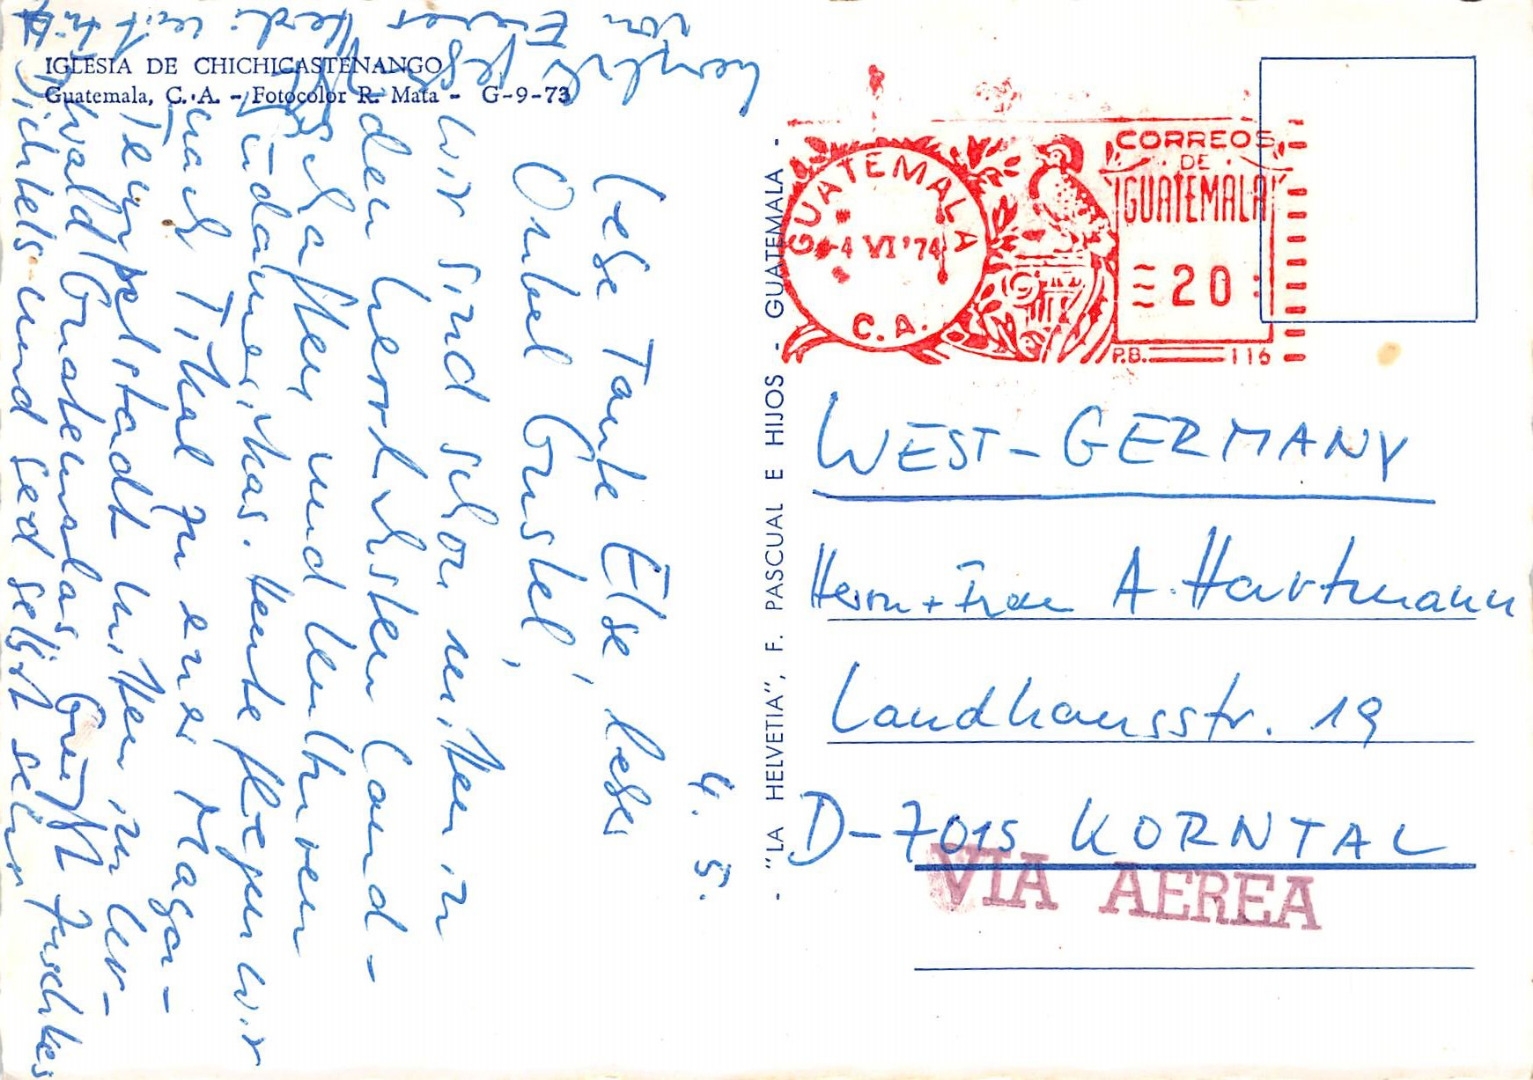 IGLESIA DE CHICHICASTENANGO
Guatemala, C. A. - Fotocolor R. Mata - G-9-73
4. 5.
Liebe Tante Else, lieber
Onkel Gustel,
wir sind schon mitten in
den herrlichsten Land-
schaften und Kulturen
Südamerikas. Heute fliegen wir
nach Tikal zu einer Maya-
Tempelstadt mitten im Ur-
wald Guatemalas. Grüßt
Dichtels und seid selbst sehr
herzlich
von Eurer
- "LA HELVETIA", F. PASCUAL E HIJOS - GUATEMALA -
GUATEMALA
4 VI '74
C. A.
CORREOS
DE
GUATEMALA
20
P.B. 116
WEST-GERMANY
Herrn + Frau A. Hartmann
Landhausstr. 19
D-7015 KORNTAL
VIA AEREA